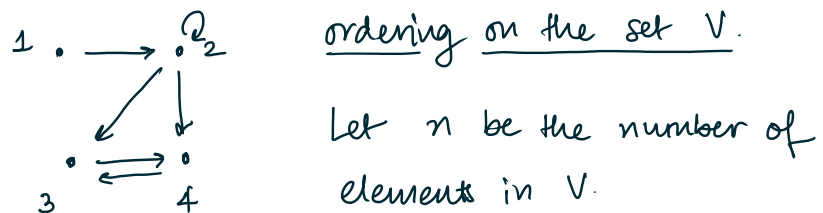 1 2 ordering on the set V.
Let n be the number of
3 4 elements in V.